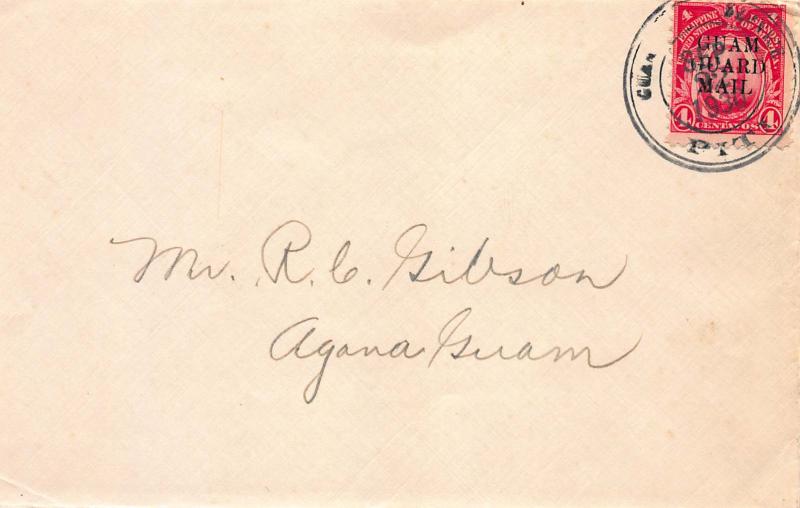 PHILIPPINE ISLANDS
UNITED STATES OF AMERICA
GUAM
GUARD
MAIL
4 CENTAVOS 4
SEP
1930
PITI
Mr. R. C. Gibson
Agana Guam